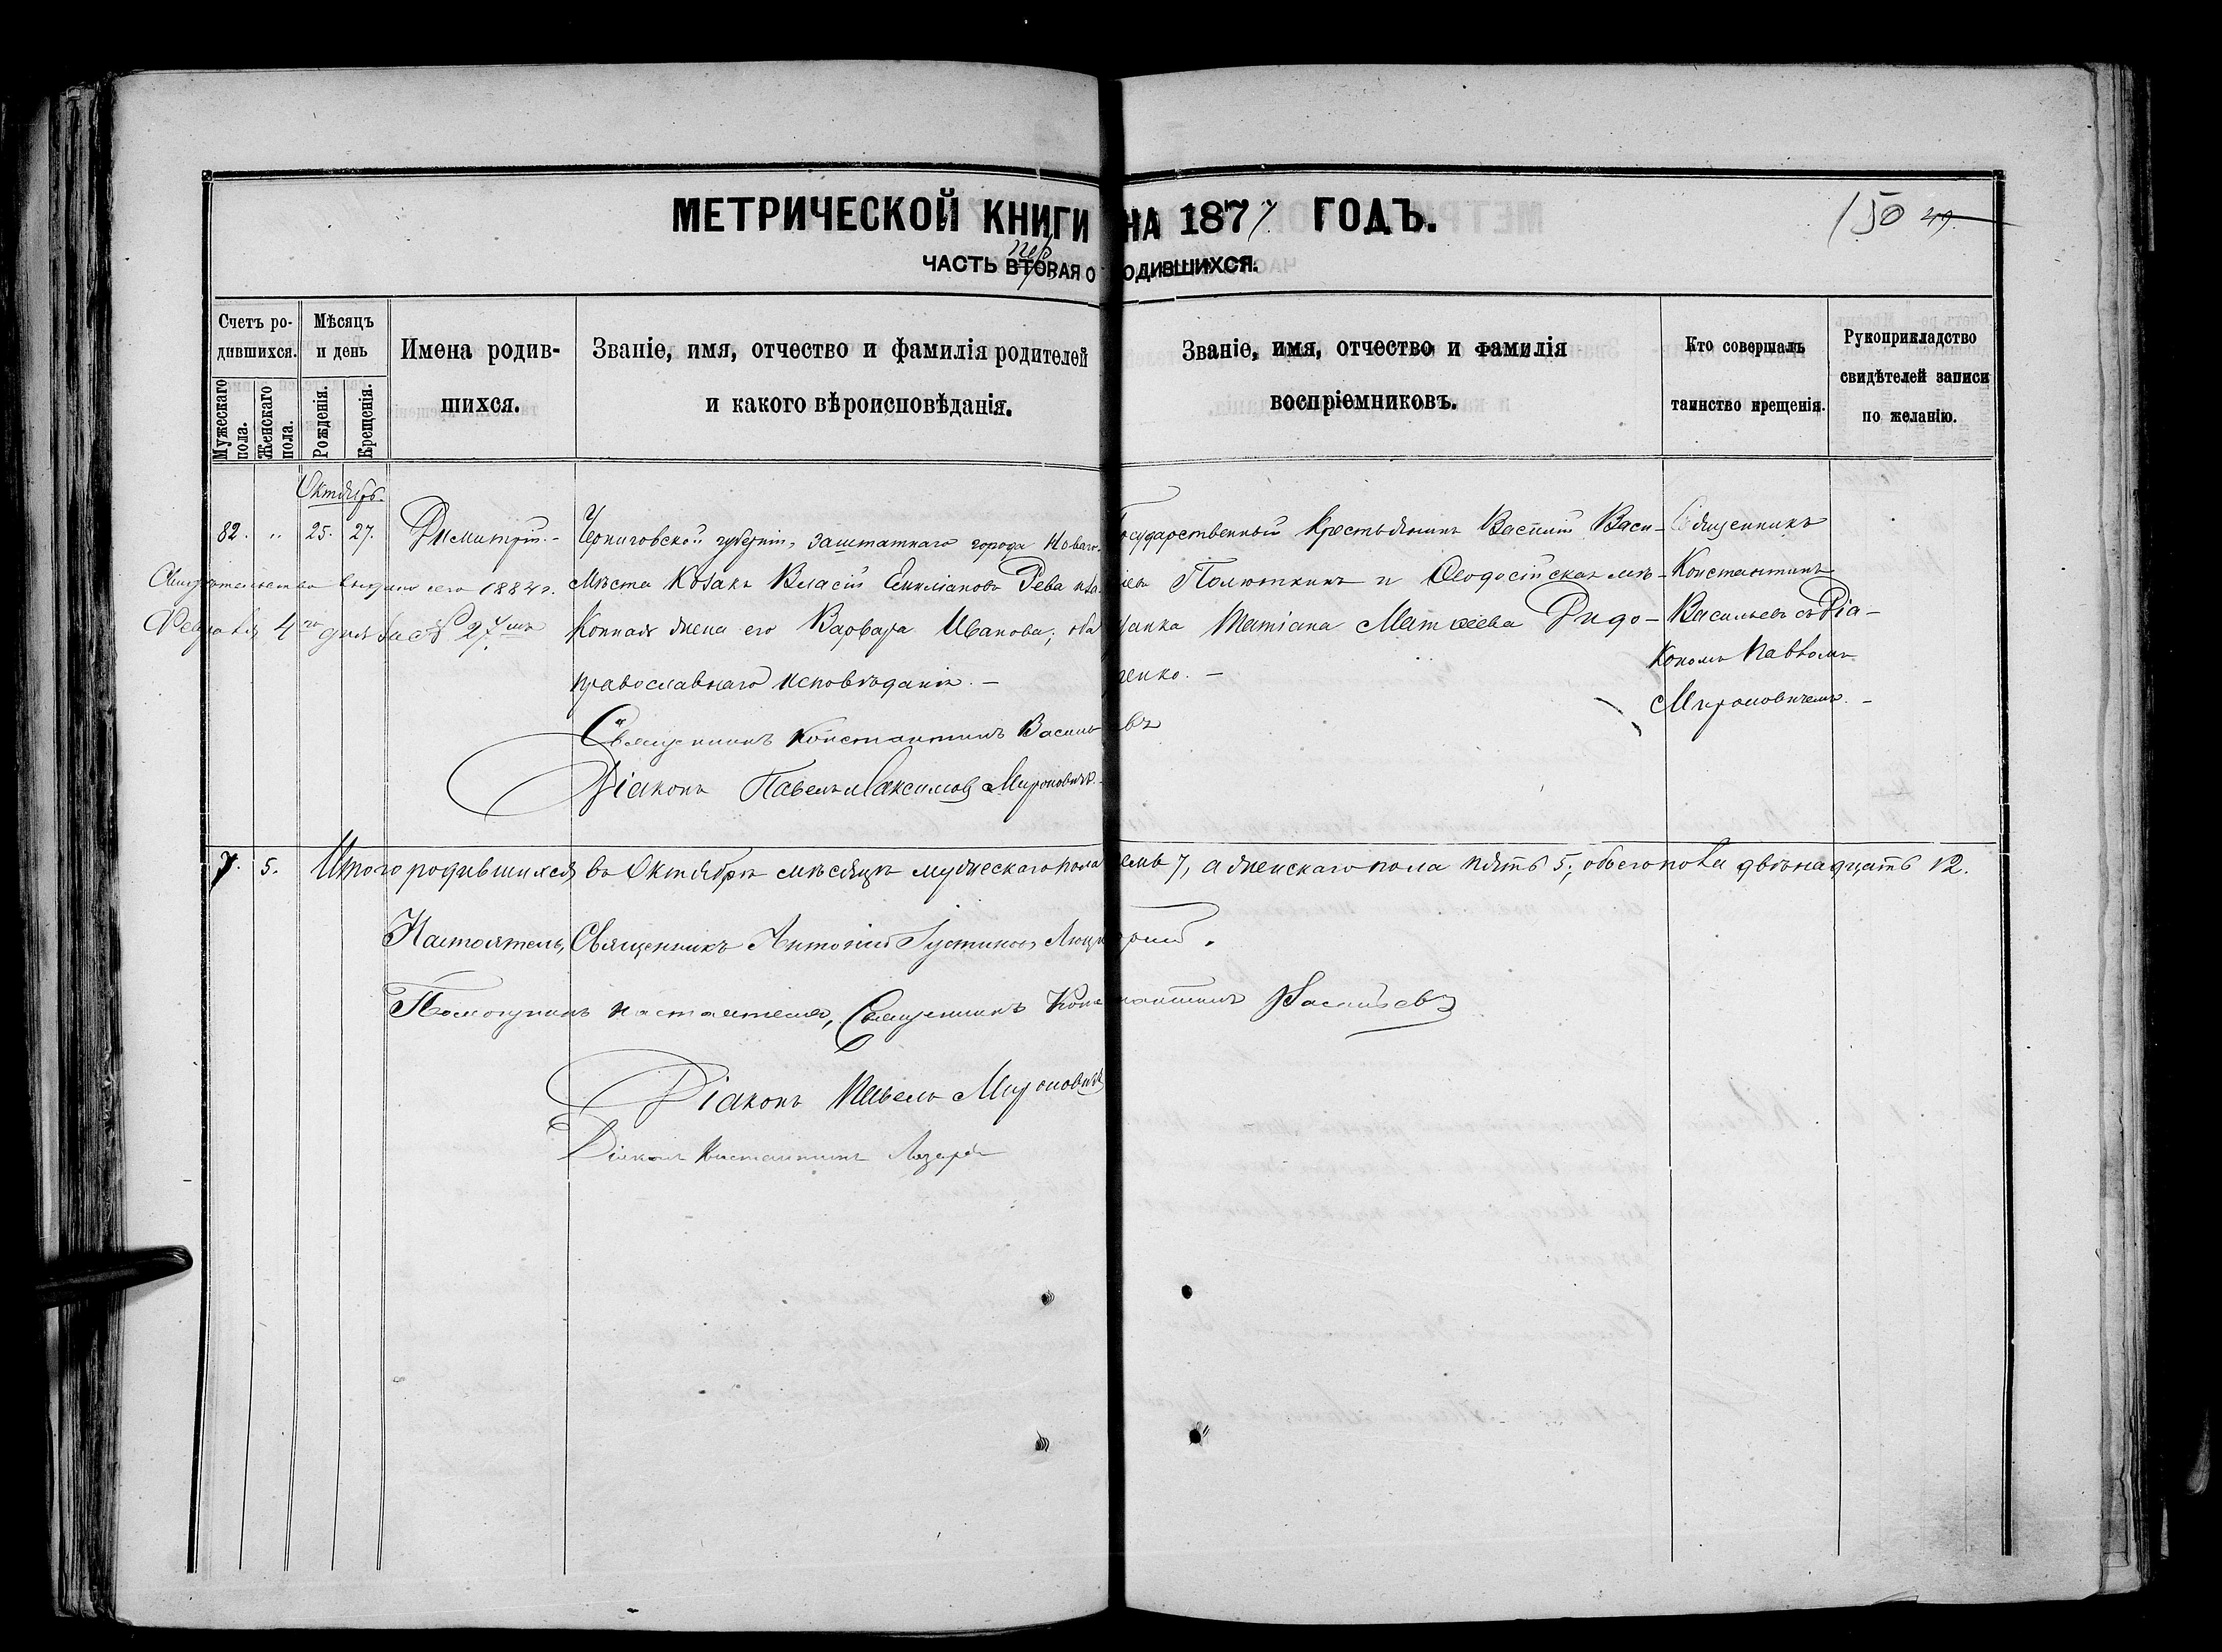 МЕТРИЧЕСКОЙ КНИГИ НА 1877 ГОДЪ.
150 49.
пер.
ЧАСТЬ ВТОРАЯ О ОДИВШИХСЯ.
Счетъ ро-
дившихся.
Мужескаго пола.
Женскаго пола.
Мѣсяцъ
и день
Рожденія.
Крещенія.
Имена родив-
шихся.
Званіе, имя, отчество и фамилія родителей
и какого вѣроисповѣданія.
Званіе, имя, отчество и фамилія
воспріемниковъ.
Кто совершалъ
таинство крещенія.
Рукоприкладство
свидѣтелей записи
по желанію.
Октябрь.
82. " 25. 27. Димитрій. -
Свидѣтельство выдано сего 1884 г.
Февраля 4го дня за № 27мъ
Черниговской губерніи, заштатнаго города Новаго-
мѣста Козакъ Власій Емиліановъ Рева и за-
конная жена его Варвара Иванова; оба
православнаго исповѣданія. -
Священникъ Константинъ Василь евъ
Діаконъ Павелъ Максимовъ Мироновичъ. -
осударственный крестьянинъ Василій Васи-
іевъ Полюткинъ и Ѳеодосійская мѣ-
щанка Татіана Матѳеева Дидо-
ренко. -
Священникъ
Константинъ
Васильевъ съ Діа-
кономъ Павломъ
Мироновичемъ. -
7. 5. Итого родившихся въ Октябрѣ мѣсяцѣ мужескаго пола семь 7, а женскаго пола пять 5; обоего пола двѣнадцать 12.
Настоятель, Священникъ Антоній Іустиновъ
Помощникъ настоятеля, Священникъ Константинъ Васильевъ
Діаконъ Павелъ Мироновичъ
Діаконъ Константинъ